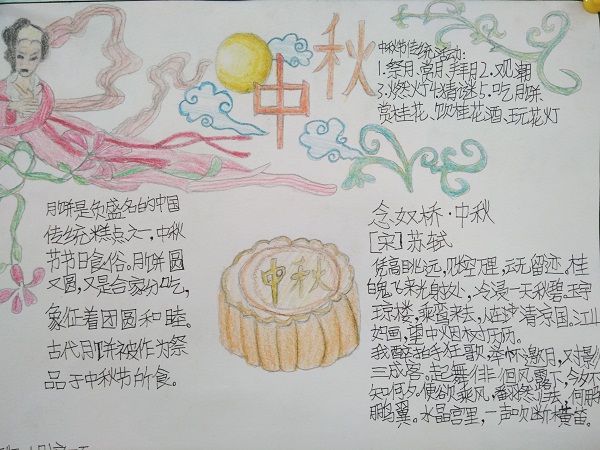 中秋
中秋节传统活动:
1.祭月、赏月、拜月2.观潮
3.燃灯4.猜谜5.吃月饼
赏桂花、饮桂花酒、玩花灯
月饼是久负盛名的中国
传统糕点之一,中秋
节节日食俗。月饼圆
又圆,又是合家分吃,
象征着团圆和睦。
古代月饼被作为祭
品于中秋节所食。
中秋
念奴桥·中秋
[宋]苏轼
凭高眺远,见长空万里,云无留迹。桂
魄飞来光射处,冷浸一天秋碧。玉宇
琼楼,乘鸾来去,人在清凉国。江山
如画,望中烟树历历。
我醉拍手狂歌,举杯邀月,对影
三成客。起舞徘 但风露下,今夕不
知何夕。便欲乘风,翻然归去,何用
鹏翼。水晶宫里,一声吹断横笛。